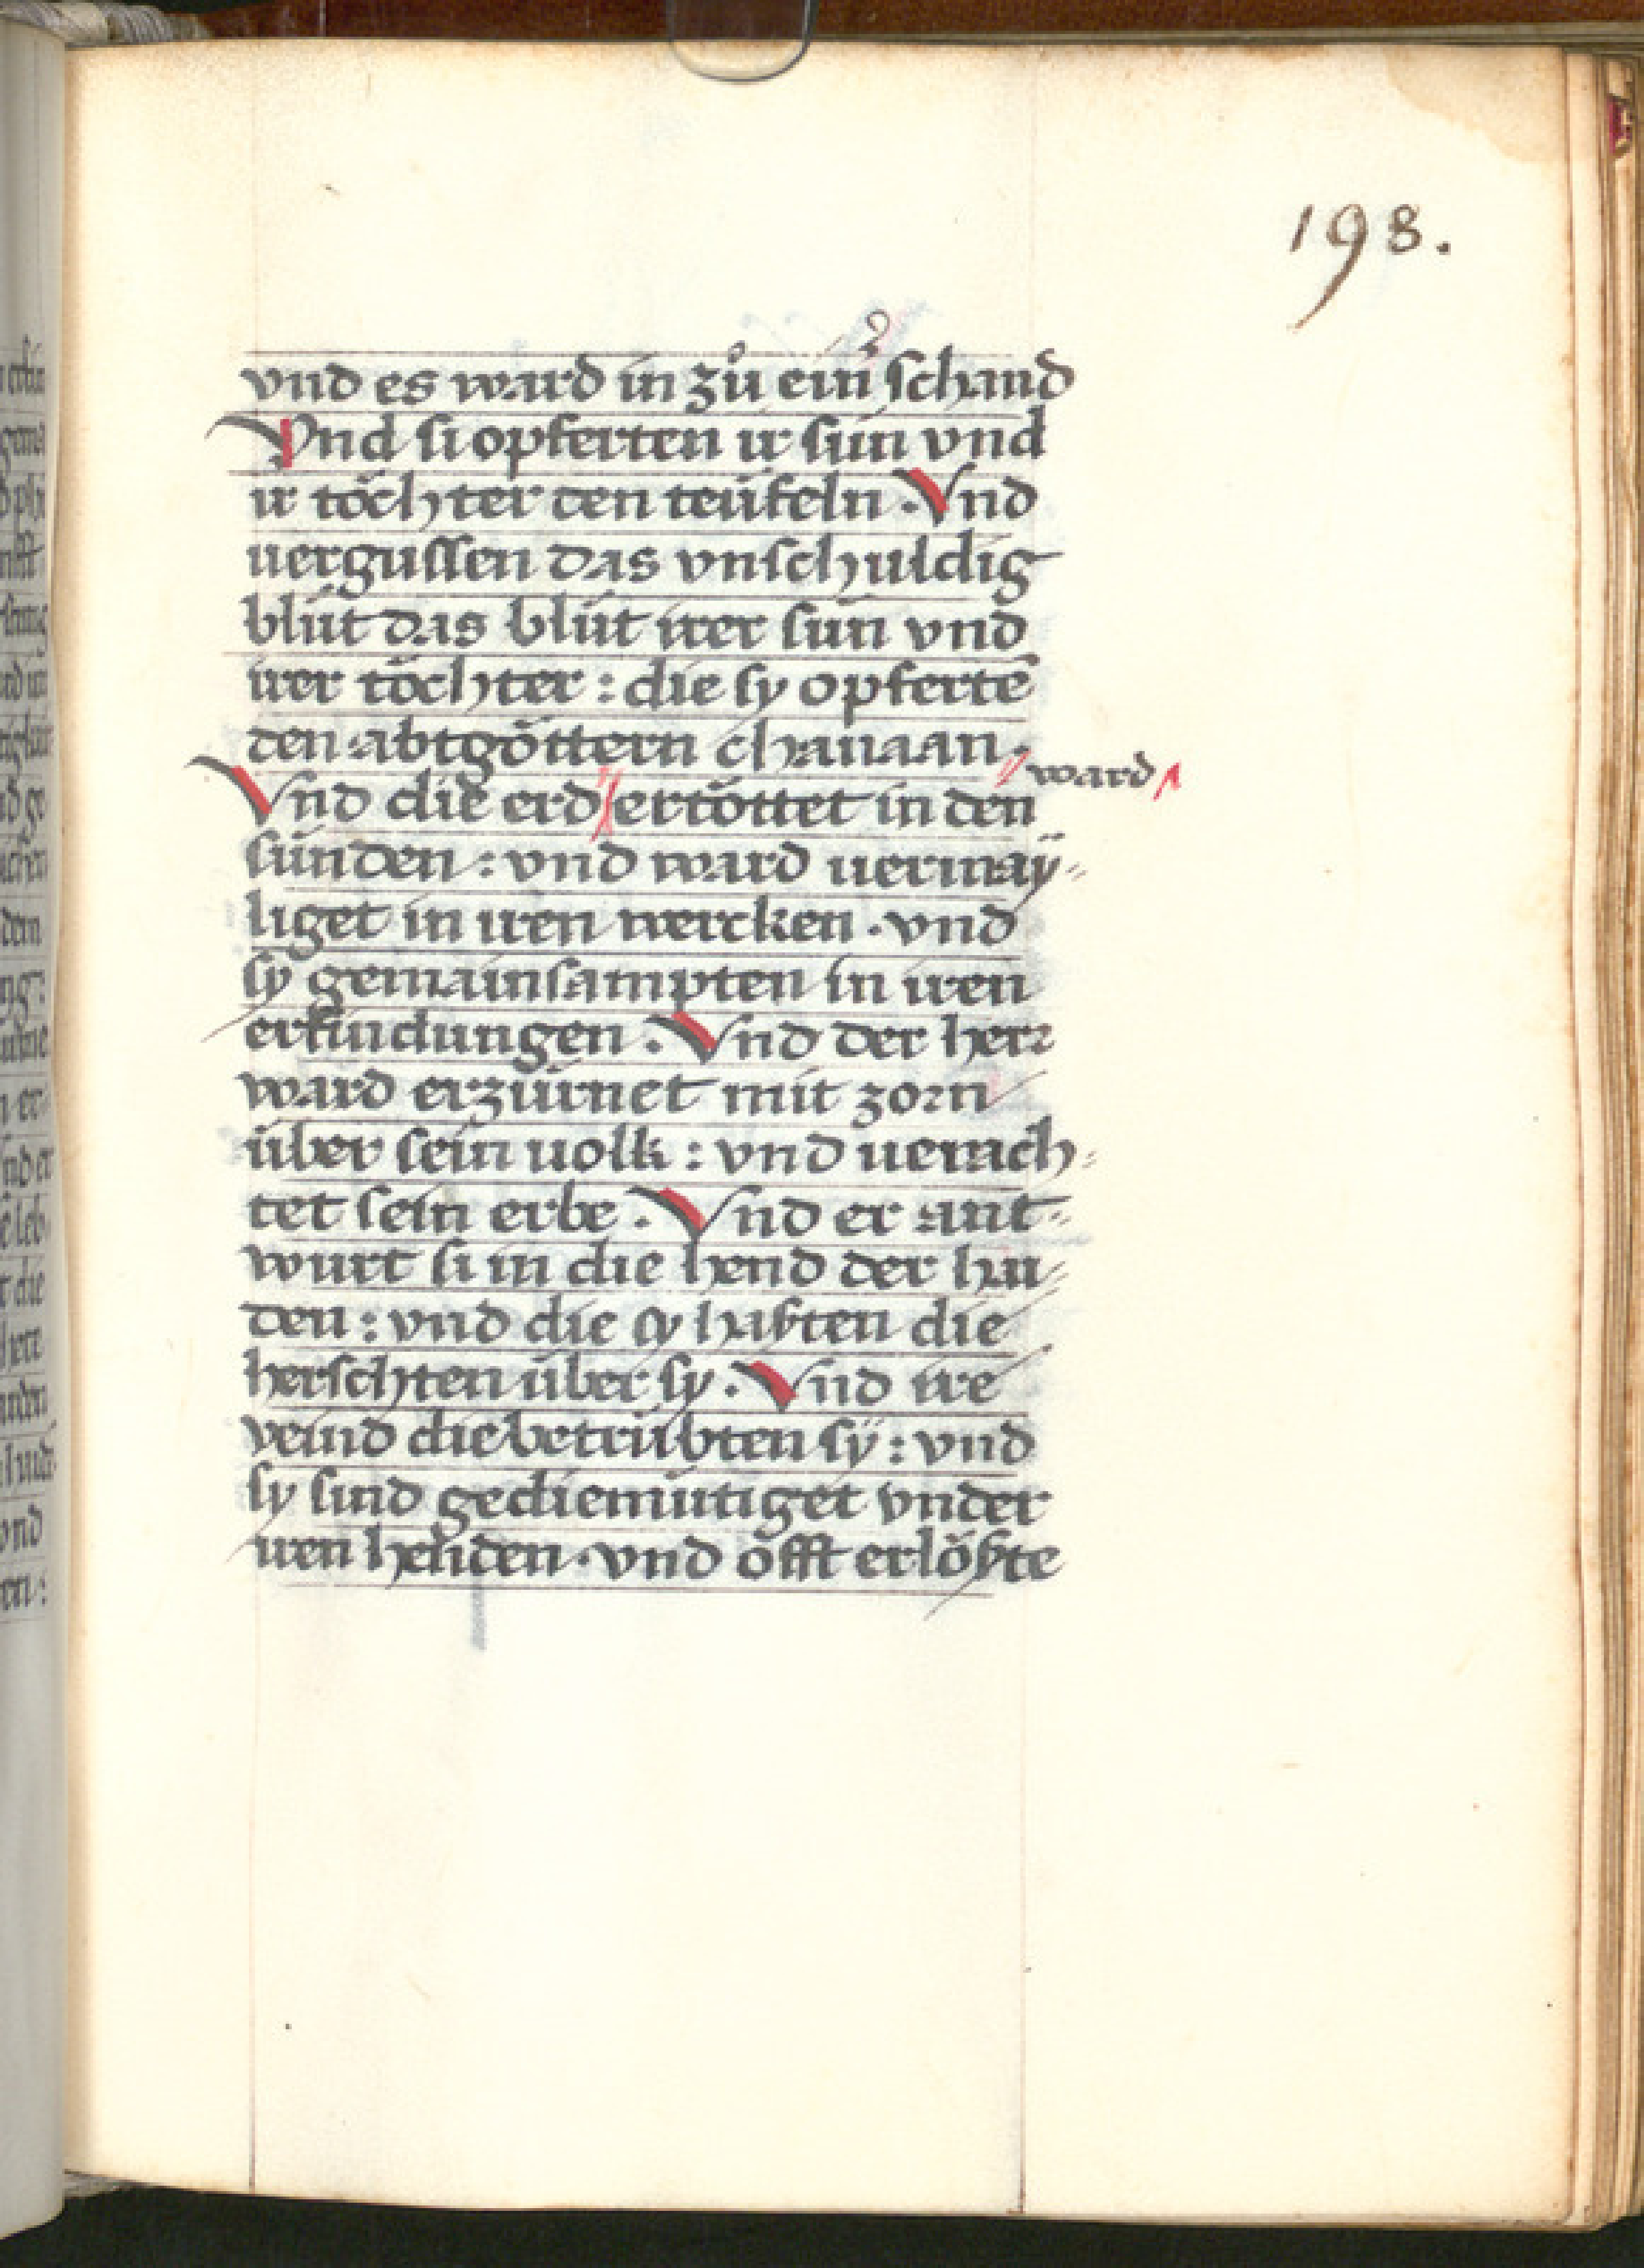 198.
vnd es ward in zů ein᷑ schand
Vnd si opferten ir sün vnd
ir töchter den teüfeln . Vnd
uergussen das vnschuldig
blüt das blüt irer sün vnd
irer töchter : die sy opfertē
den abtgöttern chanaan .
ward
Vnd die erd ertöttet in den
sünden : vnd ward uermaÿ⸗
liget in iren wercken . vnd
sy gemainsampten in iren
erfindungen . Vnd der herr
ward erzürnet mit zorn
über sein uolk : vnd uerach⸗
tet sein erbe . Vnd er ant⸗
wurt si in die hend der hai⸗
den : vnd die sy haßten die
herschten über sy . Vnd ire
veind die betrübten sÿ : vnd
sy sind gediemütiget vnder
iren henden . vnd offt erlößte